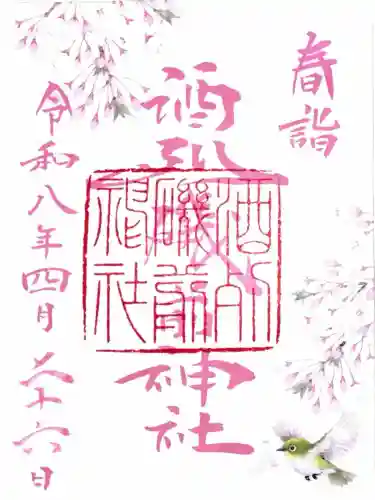 春詣
酒列磯前神社
酒列
磯前
神社
令和八年四月二十六日